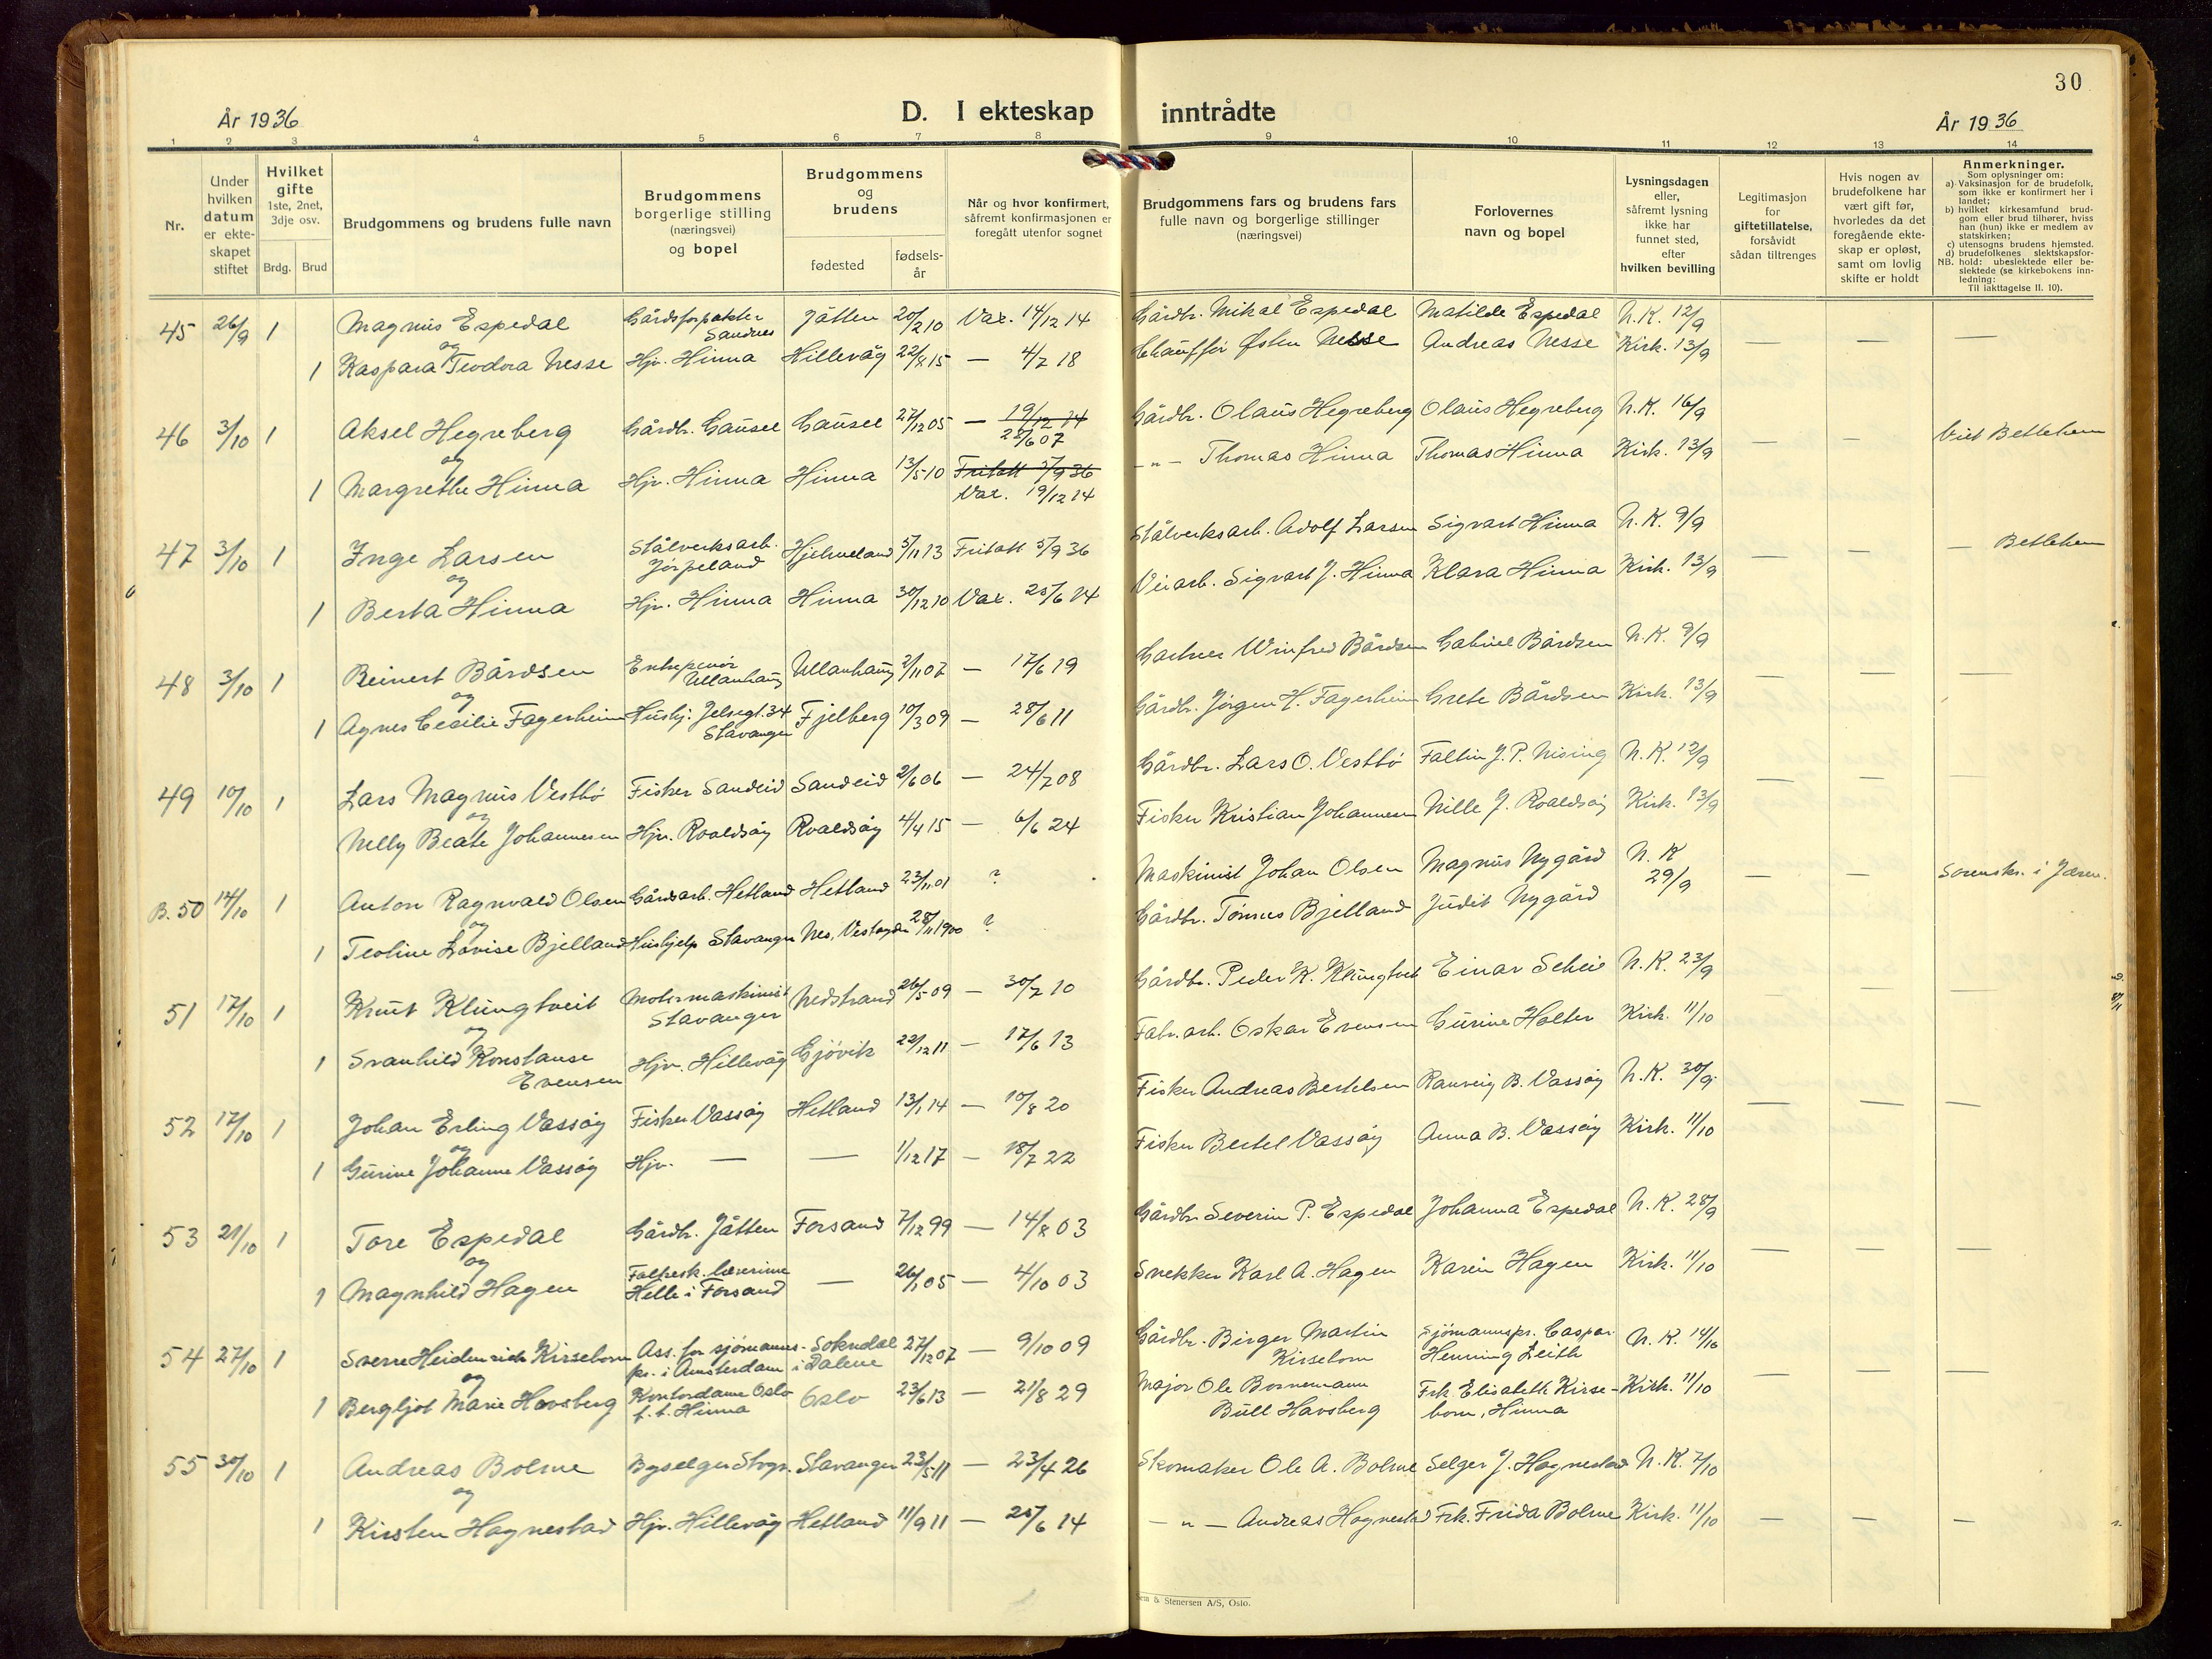 30
År 1936
D. I ekteskap inntrådte
År 1936
1 2 3 4 5 6 7 8 9 10 11 12 13 14
Nr.
Under hvilken datum er ekte-skapet stiftet
Hvilket gifte 1ste, 2net, 3dje osv.
Brdg. Brud
Brudgommens og brudens fulle navn
Brudgommens borgerlige stilling (næringsvei) og bopel
Brudgommens og brudens
fødested
fødsels-år
Når og hvor konfirmert, såfremt konfirmasjonen er foregått utenfor sognet
Brudgommens fars og brudens fars fulle navn og borgerlige stillinger (næringsvei)
Forlovernes navn og bopel
Lysningsdagen eller, såfremt lysning ikke har funnet sted, efter hvilken bevilling
Legitimasjon for giftetillatelse, forsåvidt sådan tiltrenges
Hvis nogen av brudefolkene har vært gift før, hvorledes da det foregående ekte-skap er opløst, samt om lovlig skifte er holdt
Anmerkninger.
Som oplysninger om:
a) Vaksinasjon for de brudefolk, som ikke er konfirmert her i landet;
b) hvilket kirkesamfund brud-gom eller brud tilhører, hviss han (hun) ikke er medlem av statskirken;
c) utensogns brudens hjemsted.
d) brudefolkenes slektskapsfor-hold: ubeslektede eller be-slektede (se kirkebokens inn-ledning:
NB.
Til iakttagelse II. 10).
45 26/9 1 Magnus Espedal Gårdsforpakter Sandnes Jåtten 20/2 10 Vax. 14/12 14 Gårdbr. Mikal Espedal Matilde Espedal N.K. 12/9 — — —
og
1 Kaspara Teodora Nesse Hjv. Hinna Hillevåg 22/8 15 — 4/7 18 Chauffør Østen Nesse Andreas Nesse Kirk. 13/9
46 3/10 1 Aksel Hegreberg Gårdbr. Gausel Gausel 27/12 05 — 19/12 14 28/6 07 Gårdbr. Olaus Hegreberg Olaus Hegreberg N.K. 16/9 — — Viet Betlehem
og
1 Margrethe Hinna Hjv. Hinna Hinna 13/5 10 Fritatt 5/9 36 Vax. 19/12 14 -"- Thomas Hinna Thomas Hinna Kirk. 13/9
47 3/10 1 Inge Larsen Stålverksarb. Jørpeland Hjelmeland 5/11 13 Fritatt 5/9 36 Stålverksarb. Adolf Larsen Sigvart Hinna N.K. 9/9 — — — Betlehem
og
1 Berta Hinna Hjv. Hinna Hinna 30/12 10 Vax. 25/6 14 Veiarb. Sigvart J. Hinna Klara Hinna Kirk. 13/9
48 3/10 1 Beinert Bårdsen Entrepenør Ullanhaug Ullanhaug 2/11 07 — 17/6 19 Gartner Winfred Bårdsen Gabriel Bårdsen N.K. 9/9 — — —
og
1 Agnes Cecilie Fagerheim Hushj. Jelsegt. 34 Stavanger Fjelberg 10/3 09 — 28/6 11 Gårdbr. Jörgen H. Fagerheim Grete Bårdsen Kirk. 13/9
49 10/10 1 Lars Magnus Vestbø Fisker Sandeid Sandeid 2/6 06 — 24/7 08 Gårdbr. Lars O. Vestbø Faltin J. P. Nising N.K. 12/9 — — —
og
Nelly Beate Johannesen Hjv. Roaldsøy Roaldsøy 4/4 15 — 6/6 24 Fisker Kristian Johannesen Nille J. Roaldsøy Kirk. 13/9
B. 50 14/10 1 Anton Ragnvald Olsen Gårdsarb. Hetland Hetland 23/11 01 ? Maskinist Johan Olsen Magnus Nygård N.K 29/9 — — Sorenskr. i Jæren.
og
1 Teoline Lovise Bjelland Hushjelp Stavanger Nes, Vestagder 28/11 1900 ? Gårdbr. Tönnes Bjelland Judit Nygård
51 17/10 1 Knut Klungtveit Motormaskinist Stavanger Nedstrand 26/5 09 — 30/7 10 Gårdbr. Peder K. Klungtveit Einar Scheie N.K. 23/9 — — —
og
1 Svanhild Konstanse Evensen Hjv. Hillevåg Gjövik 22/12 11 — 17/6 13 Fabr.arb. Oskar Evensen Gurine Holter Kirk. 11/10
52 17/10 1 Johan Erling Vassøy Fisker Vassøy Hetland 13/1 14 — 10/8 20 Fisker Andreas Bertelsen Ranveig B. Vassøy N.K. 30/9 — — —
og
1 Gurine Johanne Vassøy Hjv. — — 1/12 17 — 18/7 22 Fisker Bertel Vassøy Anna B. Vassøy Kirk. 11/10
53 21/10 1 Tore Espedal Gårdbr. Jåtten Forsand 7/12 99 — 14/8 03 Gårdbr. Severin P. Espedal Johanna Espedal N.K. 28/9 — — —
og
1 Magnhild Hagen Folkesk. lærerinne Helle i Forsand — 26/1 05 — 4/10 03 Snekker Karl A. Hagen Karen Hagen Kirk. 11/10
54 27/10 1 Sverre Heidenreich Kirsebom Ass. for sjömanns-pr. i Amsterdam Sokndal i Dalene 27/12 07 — 9/10 09 Gårdbr. Birger Martin Kirsebom Sjömannspr. Caspar Henning Leith N.K. 14/10 — — —
og
1 Bergljot Marie Havsberg Kontordame Oslo f. t. Hinna Oslo 23/6 13 — 21/8 29 Major Ole Bornemann Bull Havsberg Frk. Elisabeth Kirse-bom, Hinna Kirk. 11/10
55 30/10 1 Andreas Bolme Byselger Stvgr. Stavanger 23/5 11 — 23/4 26 Skomaker Ole A. Bolme Selger J. Hagnestad N.K. 7/10
og
1 Kirsten Hagnestad Hjv. Hillevåg Hetland 11/9 11 — 25/6 14 -"- Andreas Hagnestad Frk. Frida Bolme Kirk. 11/10 — — —
Sem & Stenersen A/S, Oslo.